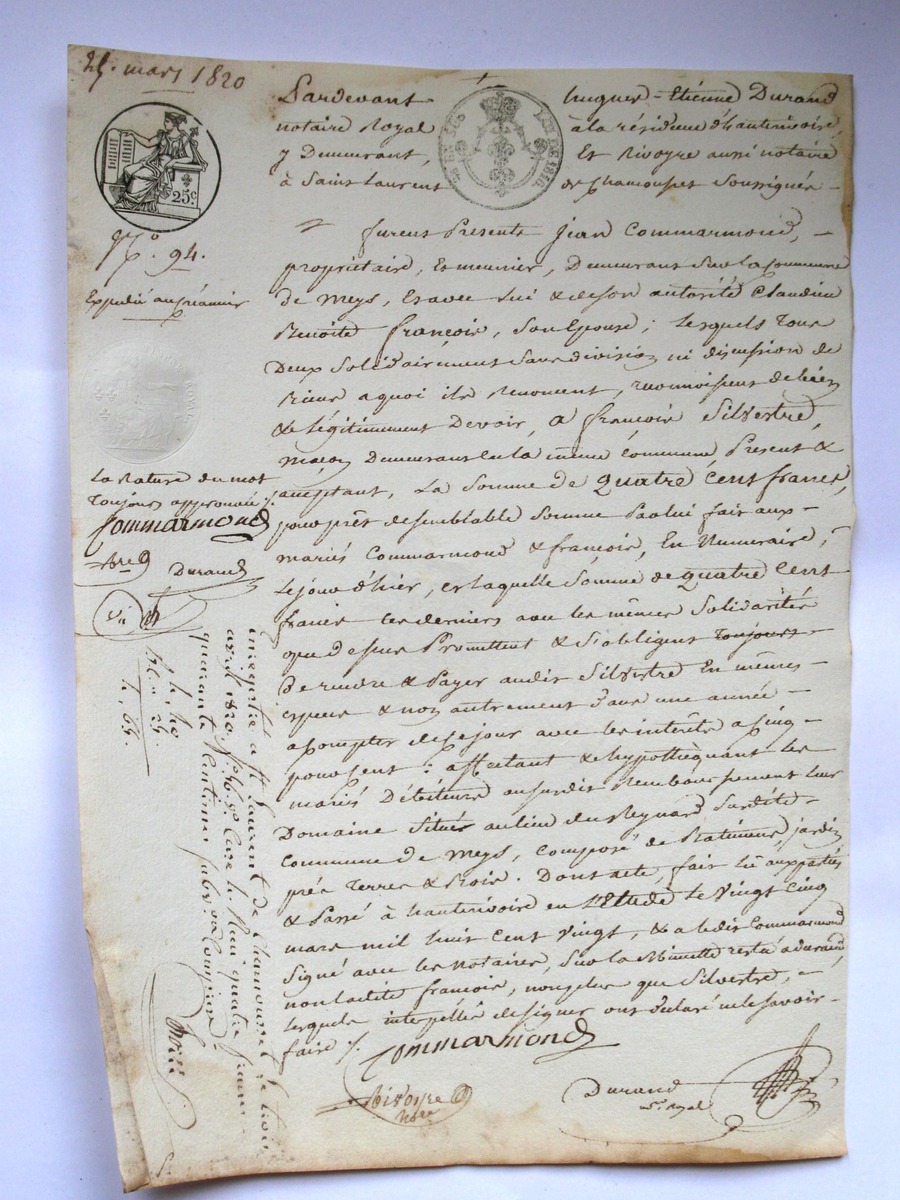 25. mars 1820
25c
LOI DE 1816
N.o 94.
Expédié au créancier
La Rature du mot
Toujours approuvée ./.
Commarmond
Durand
Pardevant hugues-Etienne Durand
notaire Royal à la résidence d'hauterivoire,
y Demeurant, Et Rivoyre aussi notaire
à Saint Laurent de Chamousset Soussignés -
furent Présents Jean Commarmond, -
propriétaire, Et meunier, Demeurant Sur la Commune
de Meys, Et avec lui & de son autorité Claudine
Benoite françois, Son Epouse ; Lesquels Tous
Deux Solidairement Sans division ni discussion de
biens a quoi ils Renoncent, reconnoissent de bien
& Légitimement Devoir, a françois Silvestre,
Maçon Demeurant en la même Commune, Present &
acceptant, La Somme de Quatre Cent francs,
pour prêt de semblable Somme Par lui fait aux -
mariés Commarmond & françois, En Numeraire,
Le jour d'hier, et laquelle Somme de quatre Cent
francs Ces derniers avec les mêmes Solidarités
que dessus Promettent & S'obligent Toujours
De rendre & Payer audit Silvestre En mêmes -
especes & non autrement dans une année -
a Compter de ce jour avec les intérêts a Cinq -
pour Cent : affectant & hypothéquant les
mariés Débiteurs au susdit Remboursement leur
Domaine Situé au lieu du Reynard Surdite -
Commune de Meys, Composé de Batiments, jardin
prés Terres & Bois. Dont acte, fait lu aux parties
& Passé à hauterivoire en l'Etude Le Vingt Cinq
mars mil huit Cent Vingt, & a ledit Commarmond
Signé avec les Notaires, Sur la Minutte restée a durand,
non ladite françois, non plus que Silvestre, -
lesquels interpellés de signer ont déclaré ne le Savoir -
faire ./.
Commarmond
Rivoyre
Nore
Durand
Nre Royal
enregistré a St. Laurent de Chamousset le trois
avril 1820. Reçu quatre francs
quarante Centimes Subv.on Comprise.